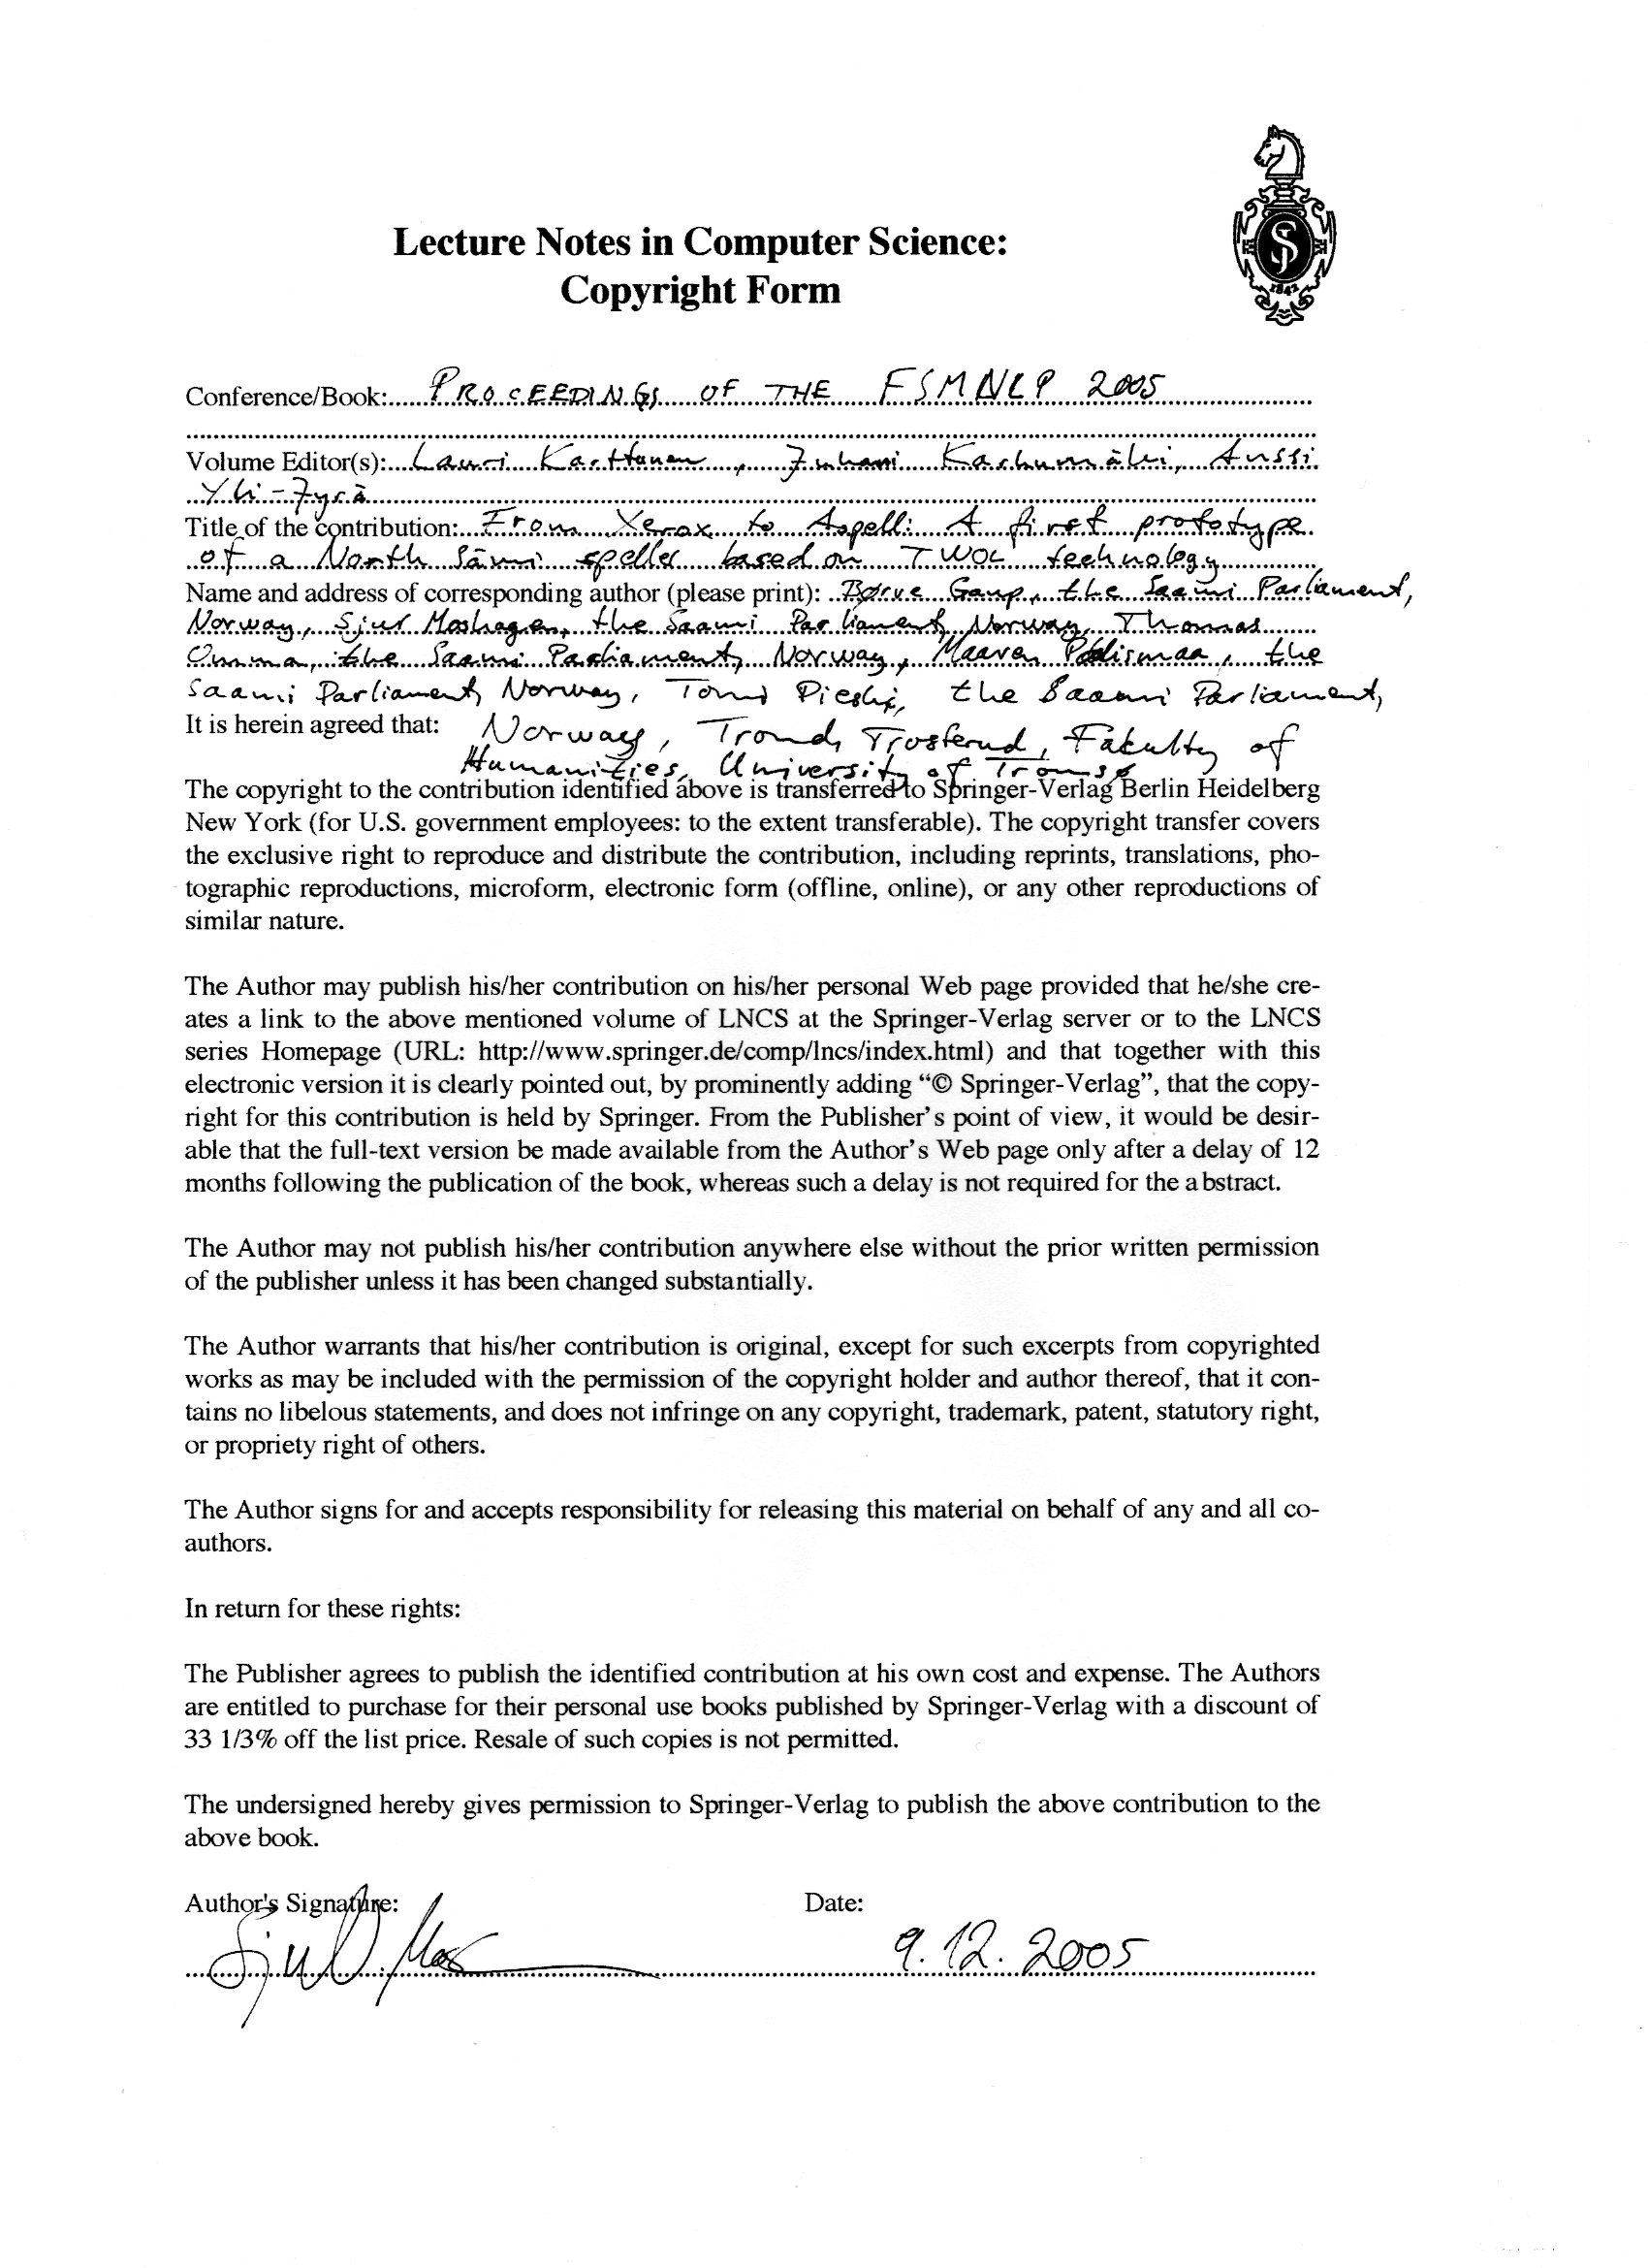 Lecture Notes in Computer Science:
Copyright Form
SJ
1842
Conference/Book: PROCEEDINGS OF THE FSMNLP 2005
Volume Editor(s): Lauri Karttunen, Juhani Karhumäki, Anssi
Yli-Jyrä
Title of the contribution: From Xerox to Aspell: A first prototype
of a North Sámi speller based on TWOL technology
Name and address of corresponding author (please print): Børre Gaup, the Saami Parliament,
Norway, Sjur Moshagen, the Saami Parliament, Norway, Thomas
Omma, the Saami Parliament, Norway, Maaren Palismaa, the
Saami Parliament, Norway, Tomi Pieski, the Saami Parliament,
It is herein agreed that: Norway, Trond Trosterud, Fakulty of
Humanities, University of Tromsø
The copyright to the contribution identified above is transferred to Springer-Verlag Berlin Heidelberg
New York (for U.S. government employees: to the extent transferable). The copyright transfer covers
the exclusive right to reproduce and distribute the contribution, including reprints, translations, pho-
tographic reproductions, microform, electronic form (offline, online), or any other reproductions of
similar nature.
The Author may publish his/her contribution on his/her personal Web page provided that he/she cre-
ates a link to the above mentioned volume of LNCS at the Springer-Verlag server or to the LNCS
series Homepage (URL: http://www.springer.de/comp/lncs/index.html) and that together with this
electronic version it is clearly pointed out, by prominently adding “© Springer-Verlag”, that the copy-
right for this contribution is held by Springer. From the Publisher’s point of view, it would be desir-
able that the full-text version be made available from the Author’s Web page only after a delay of 12
months following the publication of the book, whereas such a delay is not required for the abstract.
The Author may not publish his/her contribution anywhere else without the prior written permission
of the publisher unless it has been changed substantially.
The Author warrants that his/her contribution is original, except for such excerpts from copyrighted
works as may be included with the permission of the copyright holder and author thereof, that it con-
tains no libelous statements, and does not infringe on any copyright, trademark, patent, statutory right,
or propriety right of others.
The Author signs for and accepts responsibility for releasing this material on behalf of any and all co-
authors.
In return for these rights:
The Publisher agrees to publish the identified contribution at his own cost and expense. The Authors
are entitled to purchase for their personal use books published by Springer-Verlag with a discount of
33 1/3% off the list price. Resale of such copies is not permitted.
The undersigned hereby gives permission to Springer-Verlag to publish the above contribution to the
above book.
Author's Signature: Date:
9.12.2005